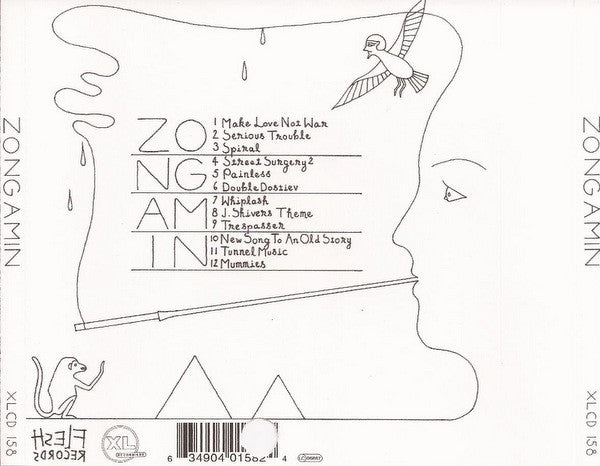 ZONGAMIN
XLCD 158
ZO
NG
AM
IN
1 Make Love Not War
2 Serious Trouble
3 Spiral
4 Street Surgery 2
5 Painless
6 Double Dostiev
7 Whiplash
8 J. Shivers Theme
9 Trespasser
10 New Song To An Old Story
11 Tunnel Music
12 Mummies
FLESH
RECORDS
XL
RECORDINGS
6 34904 01582 4
ZONGAMIN
XLCD 158